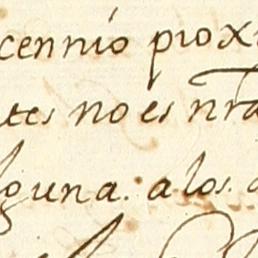 cennio proxi
tes no es nra
lguna. a los.